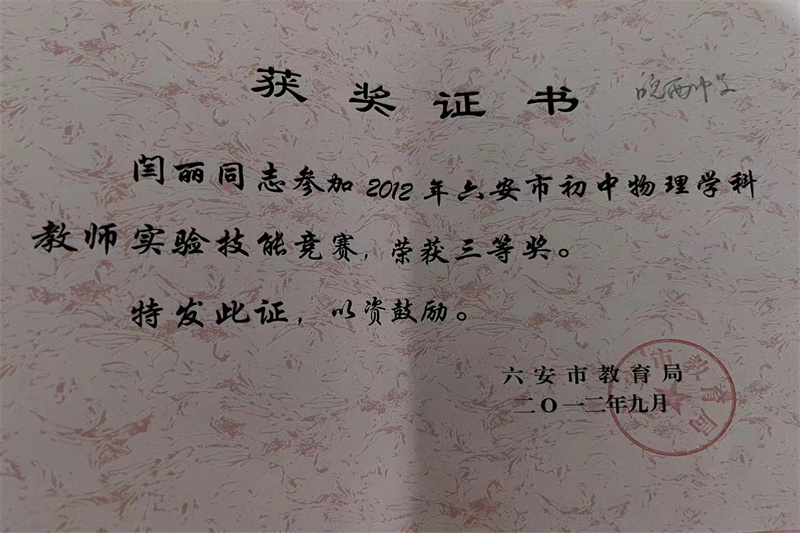 获奖证书
皖西中学
闫丽同志参加2012年六安市初中物理学科
教师实验技能竞赛，荣获三等奖。
特发此证，以资鼓励。
六安市教育局
二〇一二年九月
市教育局